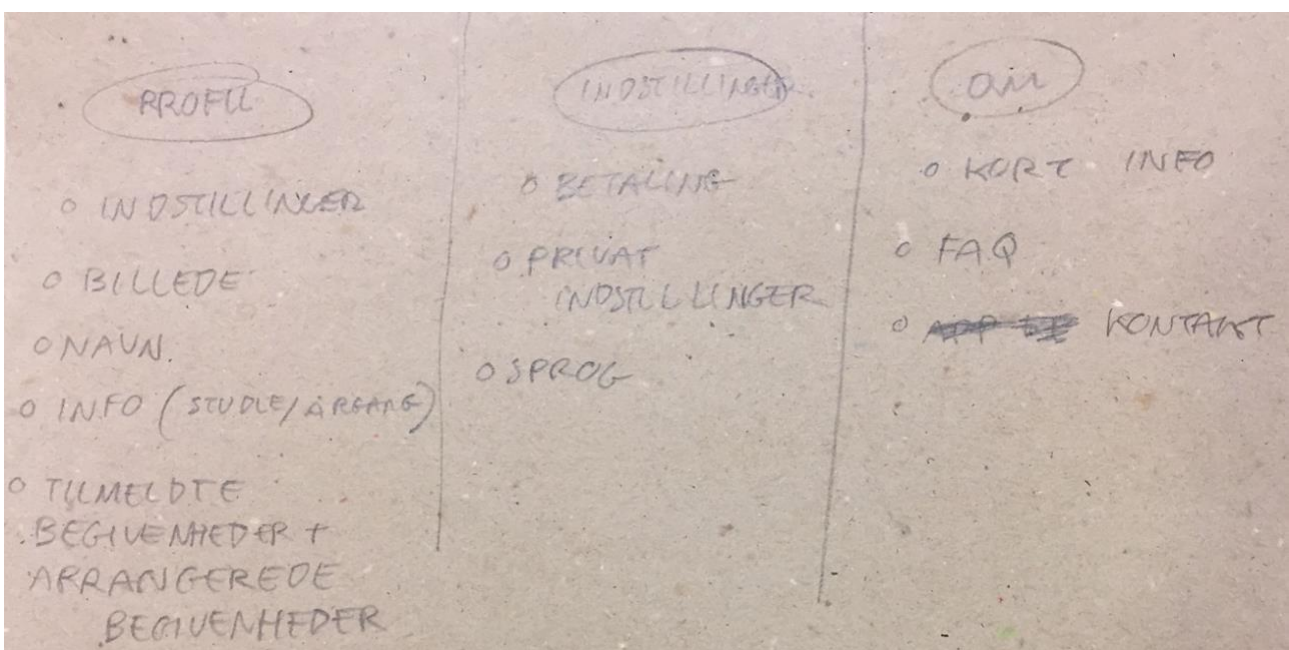 PROFIL
o INDSTILLINGER
o BILLEDE
o NAVN.
o INFO (STUDIE/ÅRGANG)
o TILMELDTE
BEGIVENHEDER +
ARRANGEREDE
BEGIVENHEDER
INDSTILLINGER
o BETALING
o PRIVAT
INDSTILLINGER
o SPROG
OM
o KORT INFO
o FAQ
o KONTAKT